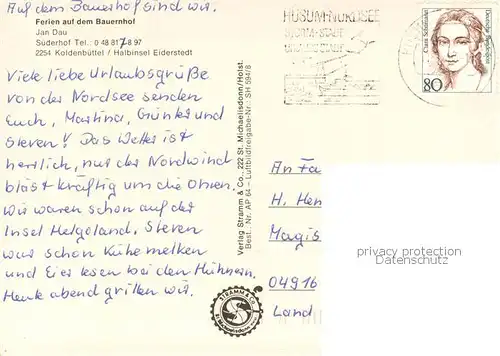 Auf dem Bauerhof sind wir.
Ferien auf dem Bauernhof
Jan Dau
Süderhof Tel.: 0 48 81 7-8 97
2254 Koldenbüttel / Halbinsel Eiderstedt
Viele liebe Urlaubsgrüße
von der Nordsee senden
Euch, Martina, Günter und
Steven! Das Wetter ist
herrlich, nur der Nordwind
bläst kräftig um die Ohren.
Wir waren schon auf der
Insel Helgoland. Steven
war schon Kühe melken
und Eier lesen bei den Hühnern.
Heute abend grillen wir.
Verlag Stramm & Co., 222 St. Michaelisdonn/Holst.
Best. Nr. AP 64 – Luftbildfreigabe-Nr. SH 594/8
STRAMM & CO.
St. Michaelisdonn
HUSUM-NORDSEE
STORM-STADT
Clara Schumann
Deutsche Bundespost
80
An Fa
H. Hen
Magis
04916
Land
privacy protection
Datenschutz